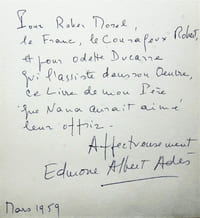 Pour Robert Morel,
le Franc, le Courageux Robert,
et pour Odette Ducarre
qui l'assiste dans son Oeuvre,
ce Livre de mon Père
que Nana aurait aimé
leur offrir.
Affectueusement
Edmone Albert Adès
Mars 1959